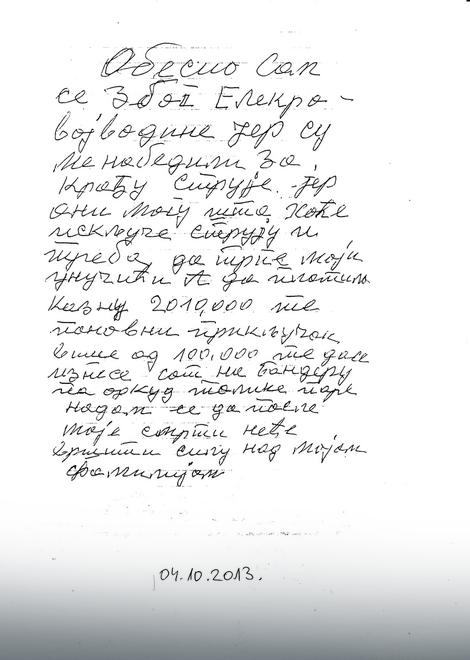 Обесио сам
се због Елекро-
војводине јер су
ме набедили за
крађу струје. јер
они могу шта хоће
искључе струју и
треба да трпе моји
унучићи А да платило
казну 2010,000 те
поновни прикључак
више од 100,000 те да се
изнесе сат на бандеру
па откуд толике паре
надам се да после
моје смрти неће
вршити силу над мојом
фамилијом
04.10.2013.